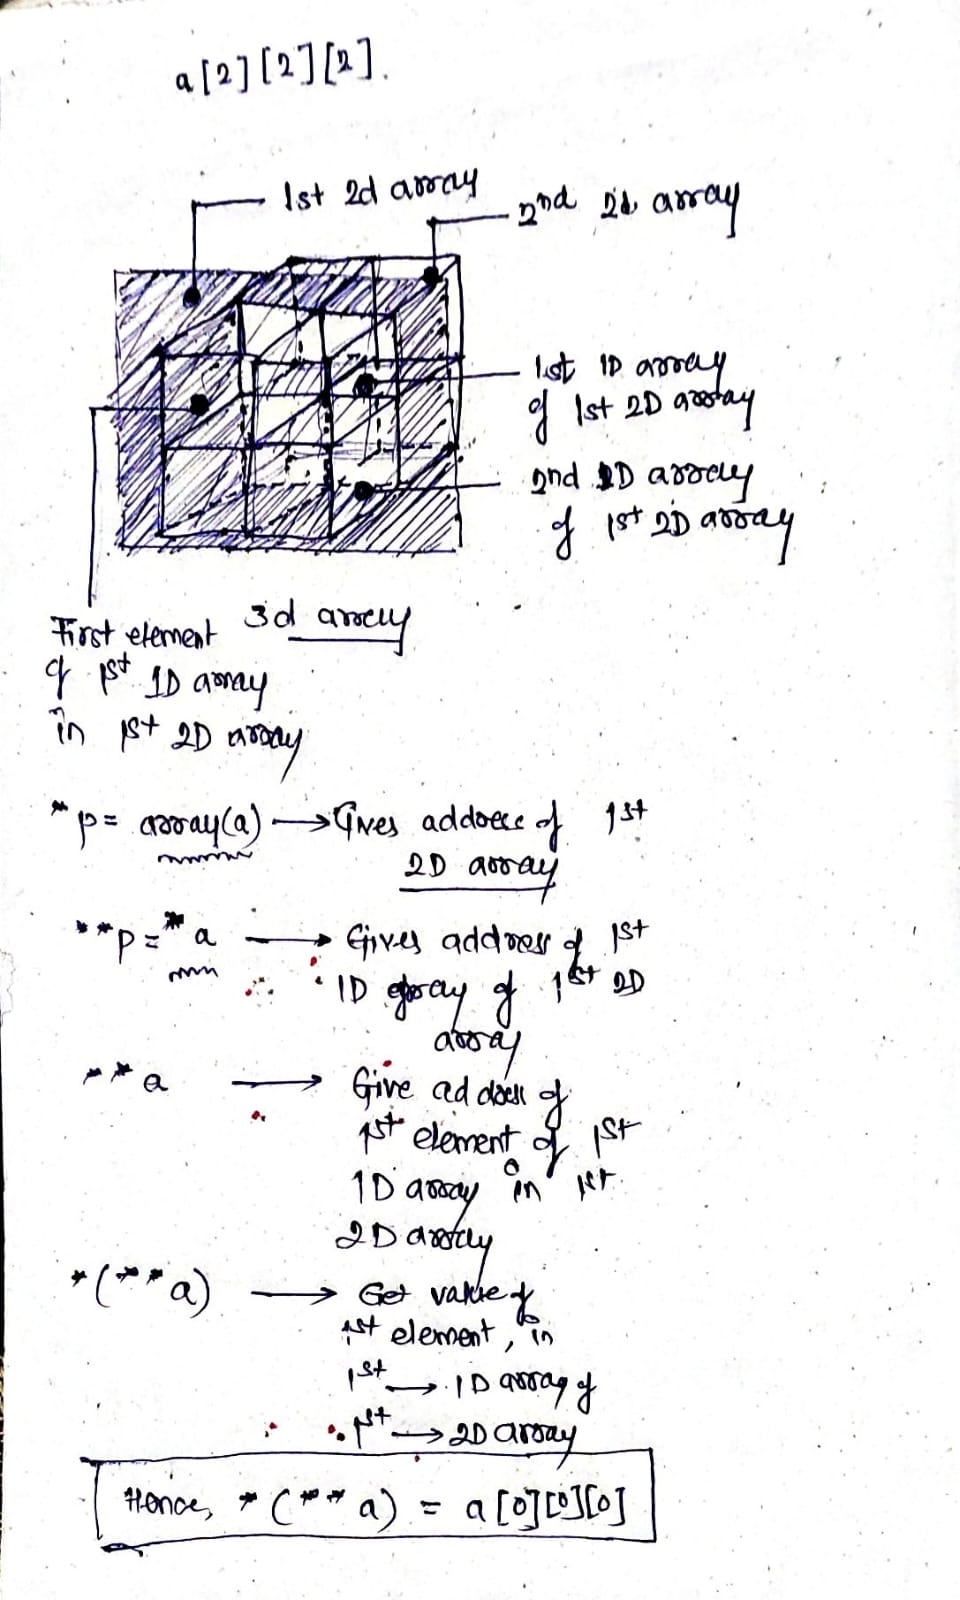 a[2][2][2].
1st 2d array
2nd 2d array
1st 1D array
of 1st 2D array
2nd 1D array
of 1st 2D array
3d array
First element
of 1st 1D array
in 1st 2D array
*p = array(a) → Gives address of 1st
2D array
**p = *a → Gives address of 1st
1D array of 1st 2D
array
**a → Give address of
1st element of 1st
1D array in 1st
2D array
*(**a) → Get value of
1st element, in
1st → 1D array of
1st → 2D array
Hence, *(**a) = a[0][0][0]